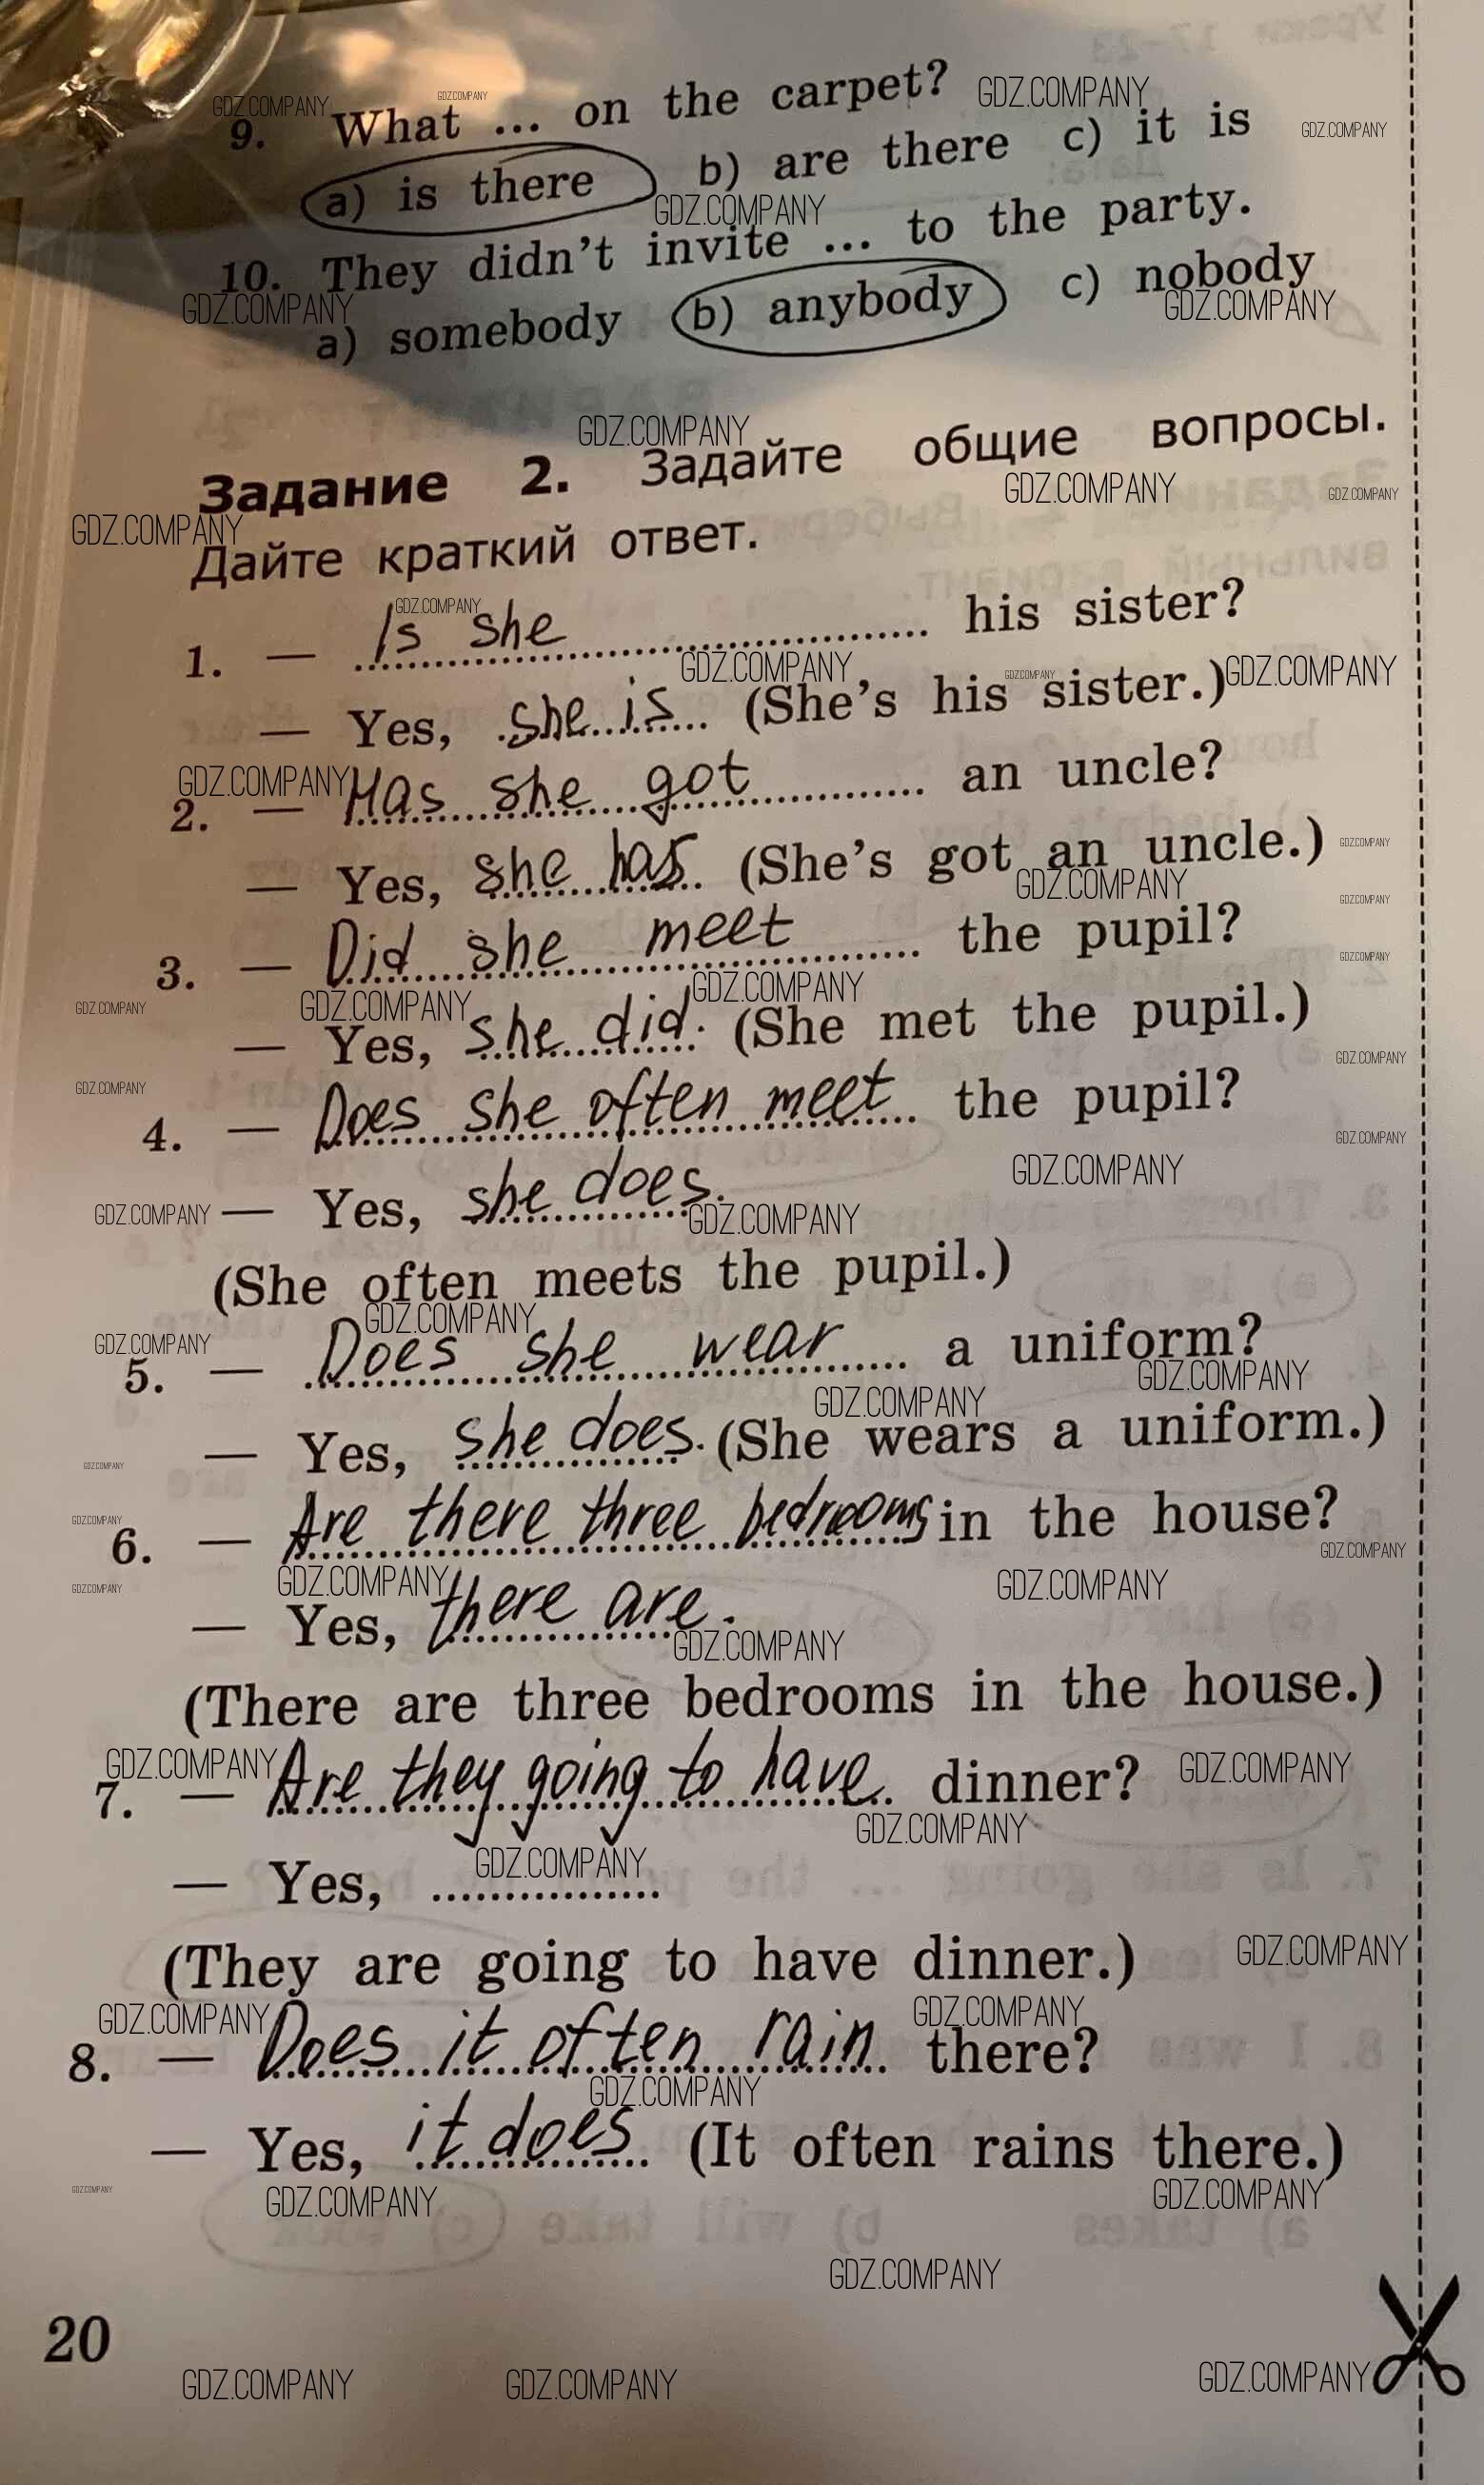 9. What ... on the carpet?
a) is there b) are there c) it is
10. They didn't invite ... to the party.
a) somebody b) anybody c) nobody
Задание 2. Задайте общие вопросы.
Дайте краткий ответ.
1. — Is she his sister?
— Yes, she is. (She's his sister.)
2. — Has she got an uncle?
— Yes, she has. (She's got an uncle.)
3. — Did she meet the pupil?
— Yes, she did. (She met the pupil.)
4. — Does she often meet the pupil?
— Yes, she does.
(She often meets the pupil.)
5. — Does she wear a uniform?
— Yes, she does. (She wears a uniform.)
6. — Are there three bedrooms in the house?
— Yes, there are.
(There are three bedrooms in the house.)
7. — Are they going to have dinner?
— Yes, ................
(They are going to have dinner.)
8. — Does it often rain there?
— Yes, it does. (It often rains there.)
20
GDZ.COMPANY